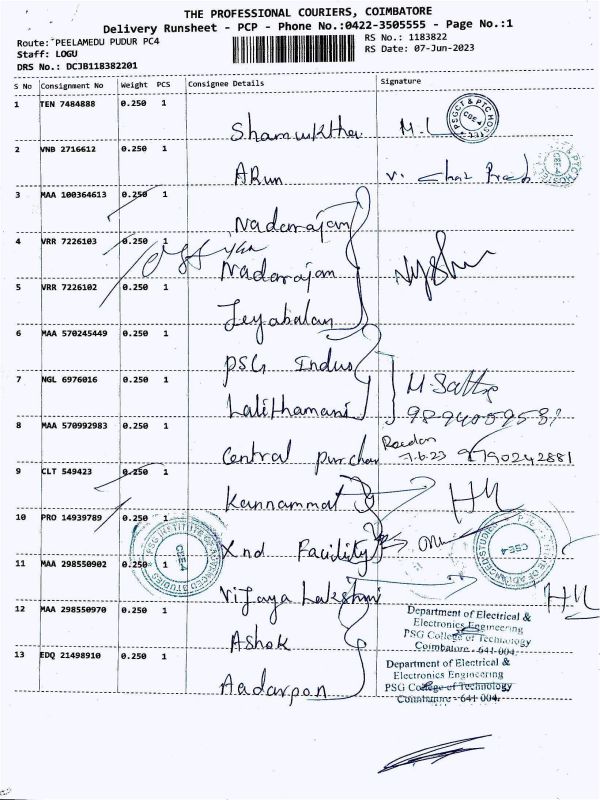 THE PROFESSIONAL COURIERS, COIMBATORE
Delivery Runsheet - PCP - Phone No.:0422-3505555 - Page No.:1
Route: PEELAMEDU PUDUR PC4
RS No.: 1183822
Staff: LOGU
RS Date: 07-Jun-2023
DRS No.: DCJB118382201
S No Consignment No Weight PCS Consignee Details Signature
1 TEN 7484888 0.250 1
PSGCT & PTC HOSTEL
CBE-4
Shamuktha M.L
2 VNB 2716612 0.250 1
PTC HOSTEL
CBE-4
ARun V.
3 MAA 100364613 0.250 1
Nadarajan
4 VRR 7226103 0.250 1
Nadarajan
5 VRR 7226102 0.250 1
Jeyabalan
6 MAA 570245449 0.250 1
PSG Indus
7 NGL 6976016 0.250 1
Lalithamani
8 MAA 570992983 0.250 1
7.6.23 9790242881
Central purchas
9 CLT 549423 0.250 1
Kannammal
10 PRO 14939789 0.250 1
PSG INSTITUTE OF ADVANCED STUDIES
CBE-4
Xnd Facility
CBE-4
11 MAA 298550902 0.250 1
Vijaya Lakshmi
12 MAA 298550970 0.250 1
Department of Electrical &
Electronics Engineering
PSG College of Technology
Coimbatore - 641 004.
Ashok
13 EDQ 21498910 0.250 1
Department of Electrical &
Electronics Engineering
PSG College of Technology
Coimbatore - 641 004.
Aadarpan